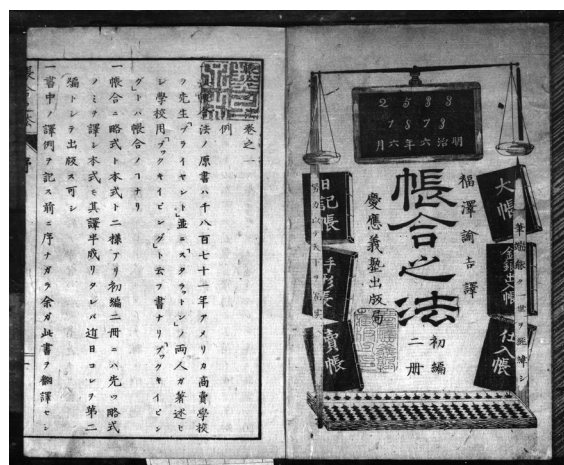 2533
1873
明治六年六月
福澤諭吉譯
帳合之法
初編
二冊
慶應義塾出版局
大帳
金銀出入帳
仕入帳
日記帳
手形帳
賣帳
帳合之法
卷之一
例
法ノ原書ハ千八百七十一年アメリカ商賣學校
ノ先生「ブライヤント」並ニ「スタラットン」ノ兩人ガ著述セ
シ學校用「ブックキイピング」ト云フ書ナリ「ブックキイピン
グ」トハ帳合ノコナリ
一帳合ニ略式ト本式ト二樣アリ初編二冊ニハ先ッ略式
ノミヲ譯シ本式モ其譯半成リタレバ近日コレヲ第二
編トシテ出版ス可シ
一書中ノ譯例ヲ記ス前ニ序ナガラ余ガ此書ヲ飜譯セシ